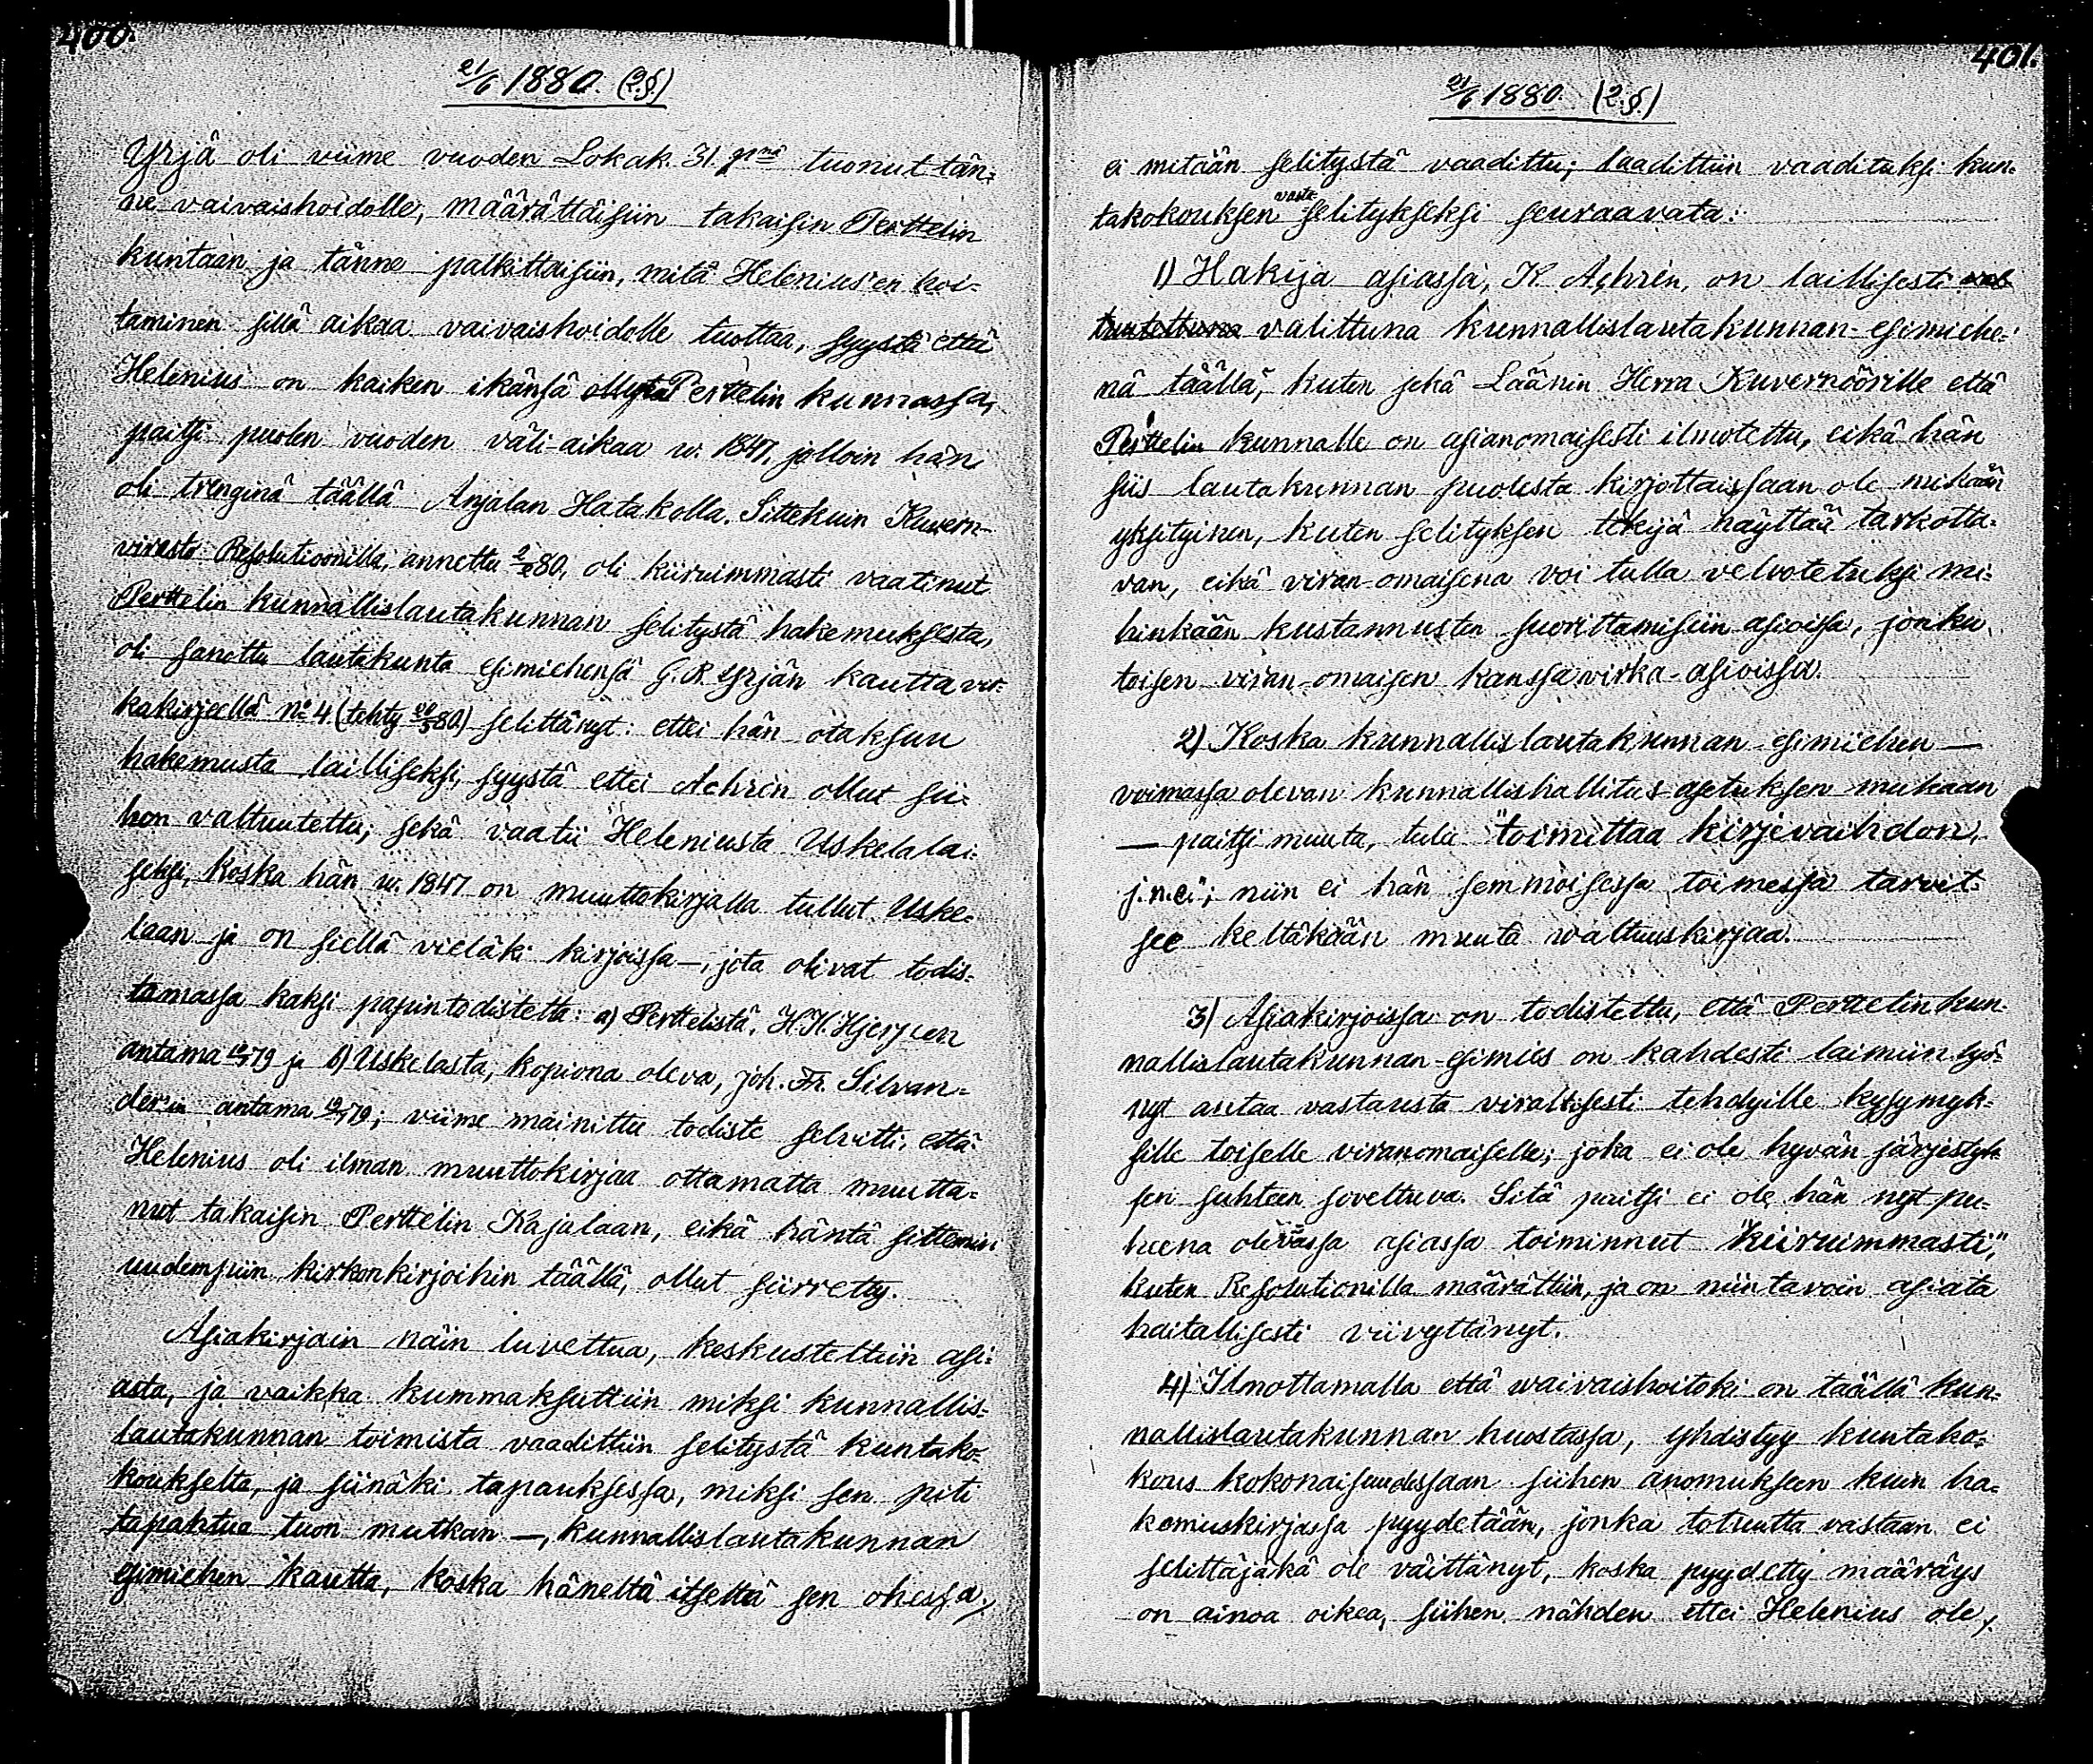 400.
21/6 1880. (2.§.)
Yrjä oli viime vuoden Lokak. 31. pnä tuonut tän-
ne vaivaishoidolle, määrättäisiin takaisin Perttelin
kuntaan ja tänne palkittaisiin, mitä Helenius'en hoi-
taminen sillä aikaa vaivaishoidolle tuottaa, syystä että
Helenius on kaiken ikänsä ollut Perttelin kunnassa,
paitsi puolen vuoden väli-aikaa w. 1847, jolloin hän
oli trenginä täällä Anjalan Hatakolla. Sittekuin Kuvern-
virasto Resolutioonilla, annettu 80, oli kiiruimmasti vaatinut
Perttelin kunnallislautakunnan selitystä hakemuksesta,
oli sanottu lautakunta esimiehensä G. R. Yrjän kautta vir-
kakirjeellä No 4 (tehty 20/5 80) selittänyt: ettei hän otaksuu
hakemusta lailliseksi, syystä ettei Achrén ollut sii-
hon valtuutettu; sekä vaatii Heleniusta Uskelalai-
seksi, koska hän w. 1847 on muuttokirjalla tullut Uske-
laan ja on siellä vieläki kirjoissa —, jota olivat todis-
tamassa kaksi papintodistetta: a) Perttelistä, H. K. Hjerpen
antama 79 ja b) Uskelasta, kopiona oleva, Joh. Fr. Silvan-
der'in antama 79; viime mainittu todiste selvitti, että
Helenius oli ilman muuttokirjaa ottamatta muutta-
nut takaisin Perttelin Kajalaan, eikä häntä sittemin
uudempiin kirkonkirjoihin täällä, ollut siirretty.
Asiakirjain näin luvettua, keskusteltiin asi-
asta, ja vaikka kummaksuttiin miksi kunnallis-
lautakunnan toimista vaadittiin selitystä kuntako-
koukselta, ja siinäki tapauksessa, miksi sen piti
tapahtua tuon mutkan —, kunnallislautakunnan
esimiehen kautta, koska häneltä itseltä sen ohessa,
401.
21/6 1880. (2.§.)
ei mitään selitystä vaadittu; laadittiin vaadituksi kun-
takokouksen vasta-selitykseksi seuraavata:
1) Hakija asiassa, K. Achrén, on laillisesti val-
tuutettuna valittuna kunnallislautakunnan-esimiehe-
nä täällä, kuten sekä Läänin Herra Kuvernöörille että
Perttelin kunnalle on asianomaisesti ilmotettu, eikä hän
siis lautakunnan puolesta kirjottaissaan ole mikään
yksityinen, kuten selityksen tekijä näyttää tarkotta-
van, eikä viran-omaisena voi tulla velvotetuksi mi-
hinkään kustannusten suorittamisiin asioissa, jonku
toisen viran-omaisen kanssa virka-asioissa.
2) Koska kunnallislautakunnan esimiehen —
voimassa olevan kunnallishallitus-asetuksen mukaan
— paitsi muuta, tulee "toimittaa kirjevaihdon,
j.n.e."; niin ei hän semmoisessa toimessa tarvit-
see keltäkään muuta waltuuskirjaa.
3) Asiakirjoissa on todistettu, että Perttelin kun-
nallislautakunnan-esimies on kahdesti laimiin lyö-
nyt antaa vastausta virallisesti tehdyille kysymyk-
sille toiselle viranomaiselle; joka ei ole hyvän järjestyk-
sen suhteen soveltuva. Sitä paitsi ei ole hän nyt pu-
heena olevassa asiassa toiminnut "kiiruimmasti",
kuten Resolutionilla määrättiin, ja on niin tavoin asiata
haitallisesti viivyttänyt.
4) Ilmottamalla että waivaishoitoki on täällä kun-
nallislautakunnan huostassa, yhdistyy kuntako-
kous kokonaisuudessaan siihen anomukseen kuin ha-
komuskirjassa pyydetään, jonka totuutta vastaan ei
selittäjäkä ole väittänyt, koska pyydetty määräys
on ainoa oikea, siihen nähden ettei Helenius ole,